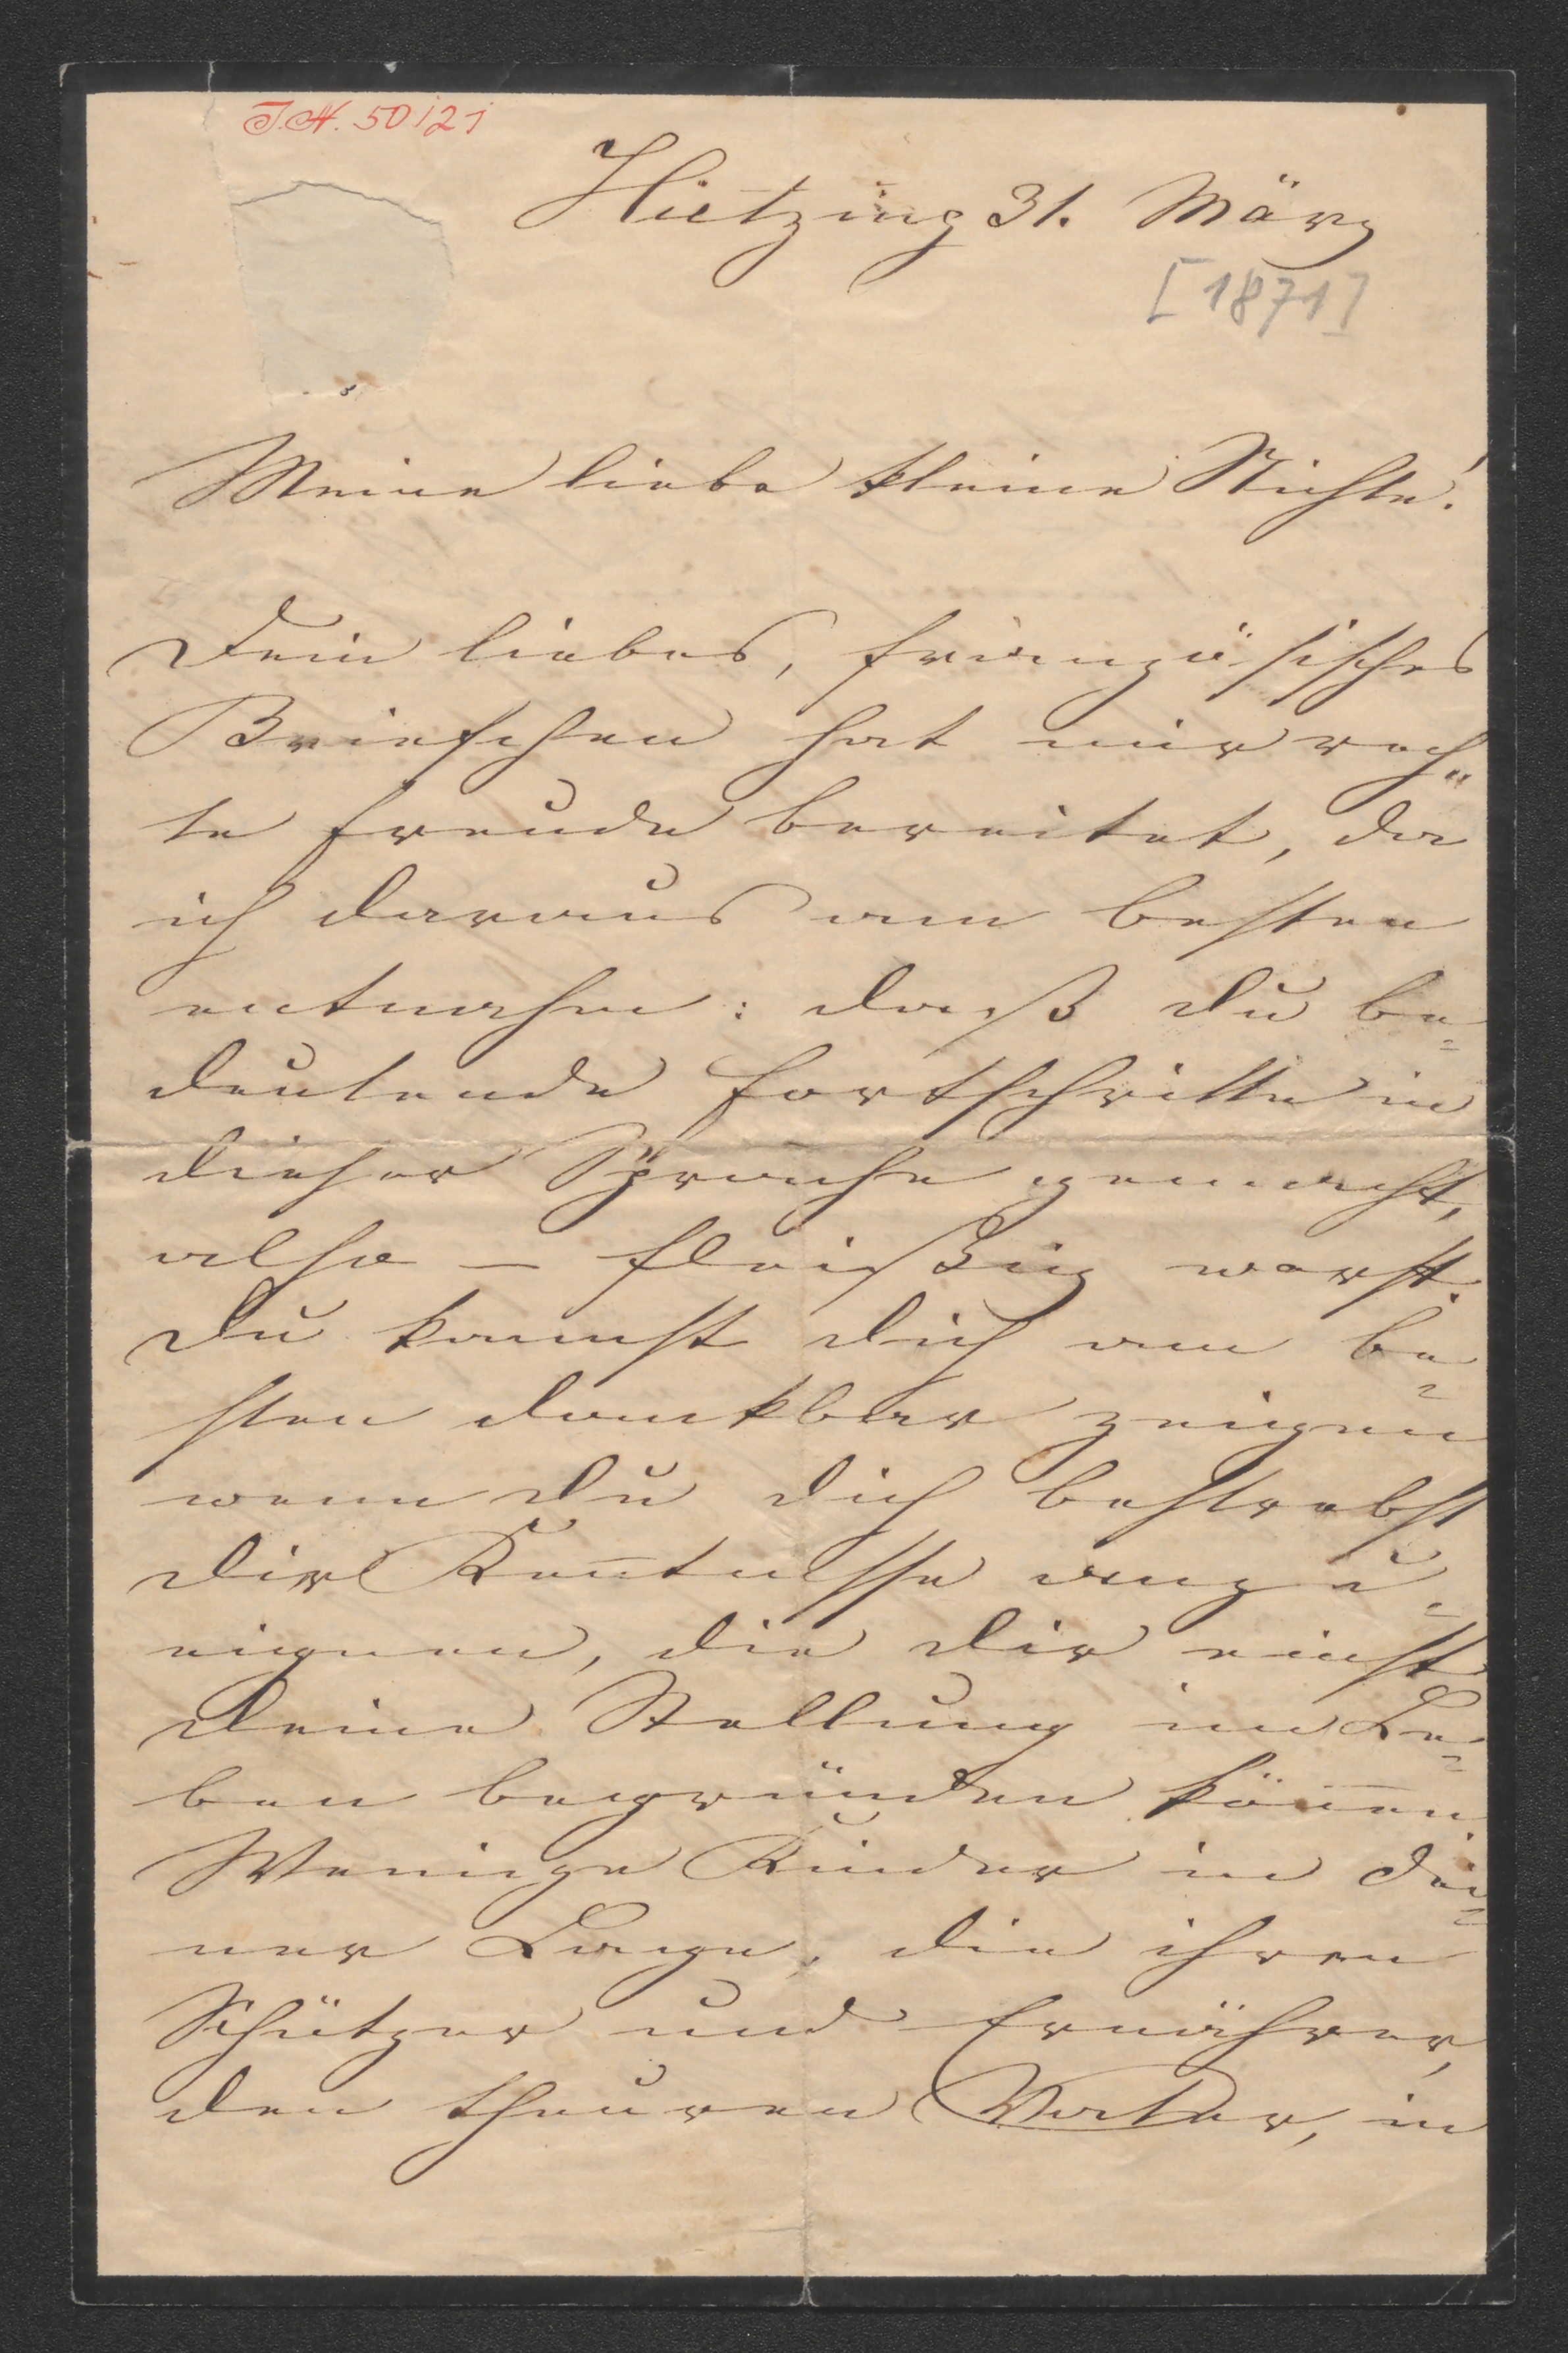 J.N. 50121
Hietzing 31. März
[1871]
Meine liebe kleine Nichte!
Dein liebes, französisches
Briefchen hat mir rech=
te Freude bereitet, da
ich daraus am besten
entnahm: daß du be=
deutende Fortschritte in
dieser Sprache gemacht,
also – fleißig warst.
Du kannst dich am be=
sten dankbar zeigen
wenn du dich bestrebst
dir Keñtnisse anzu=
eignen, die dir einst
deine Stellung im Le=
ben begründen köñen.
Wenige Kinder in dei=
ner Lage, die ihren
Schützer und Ernährer,
den theuren Vater, in